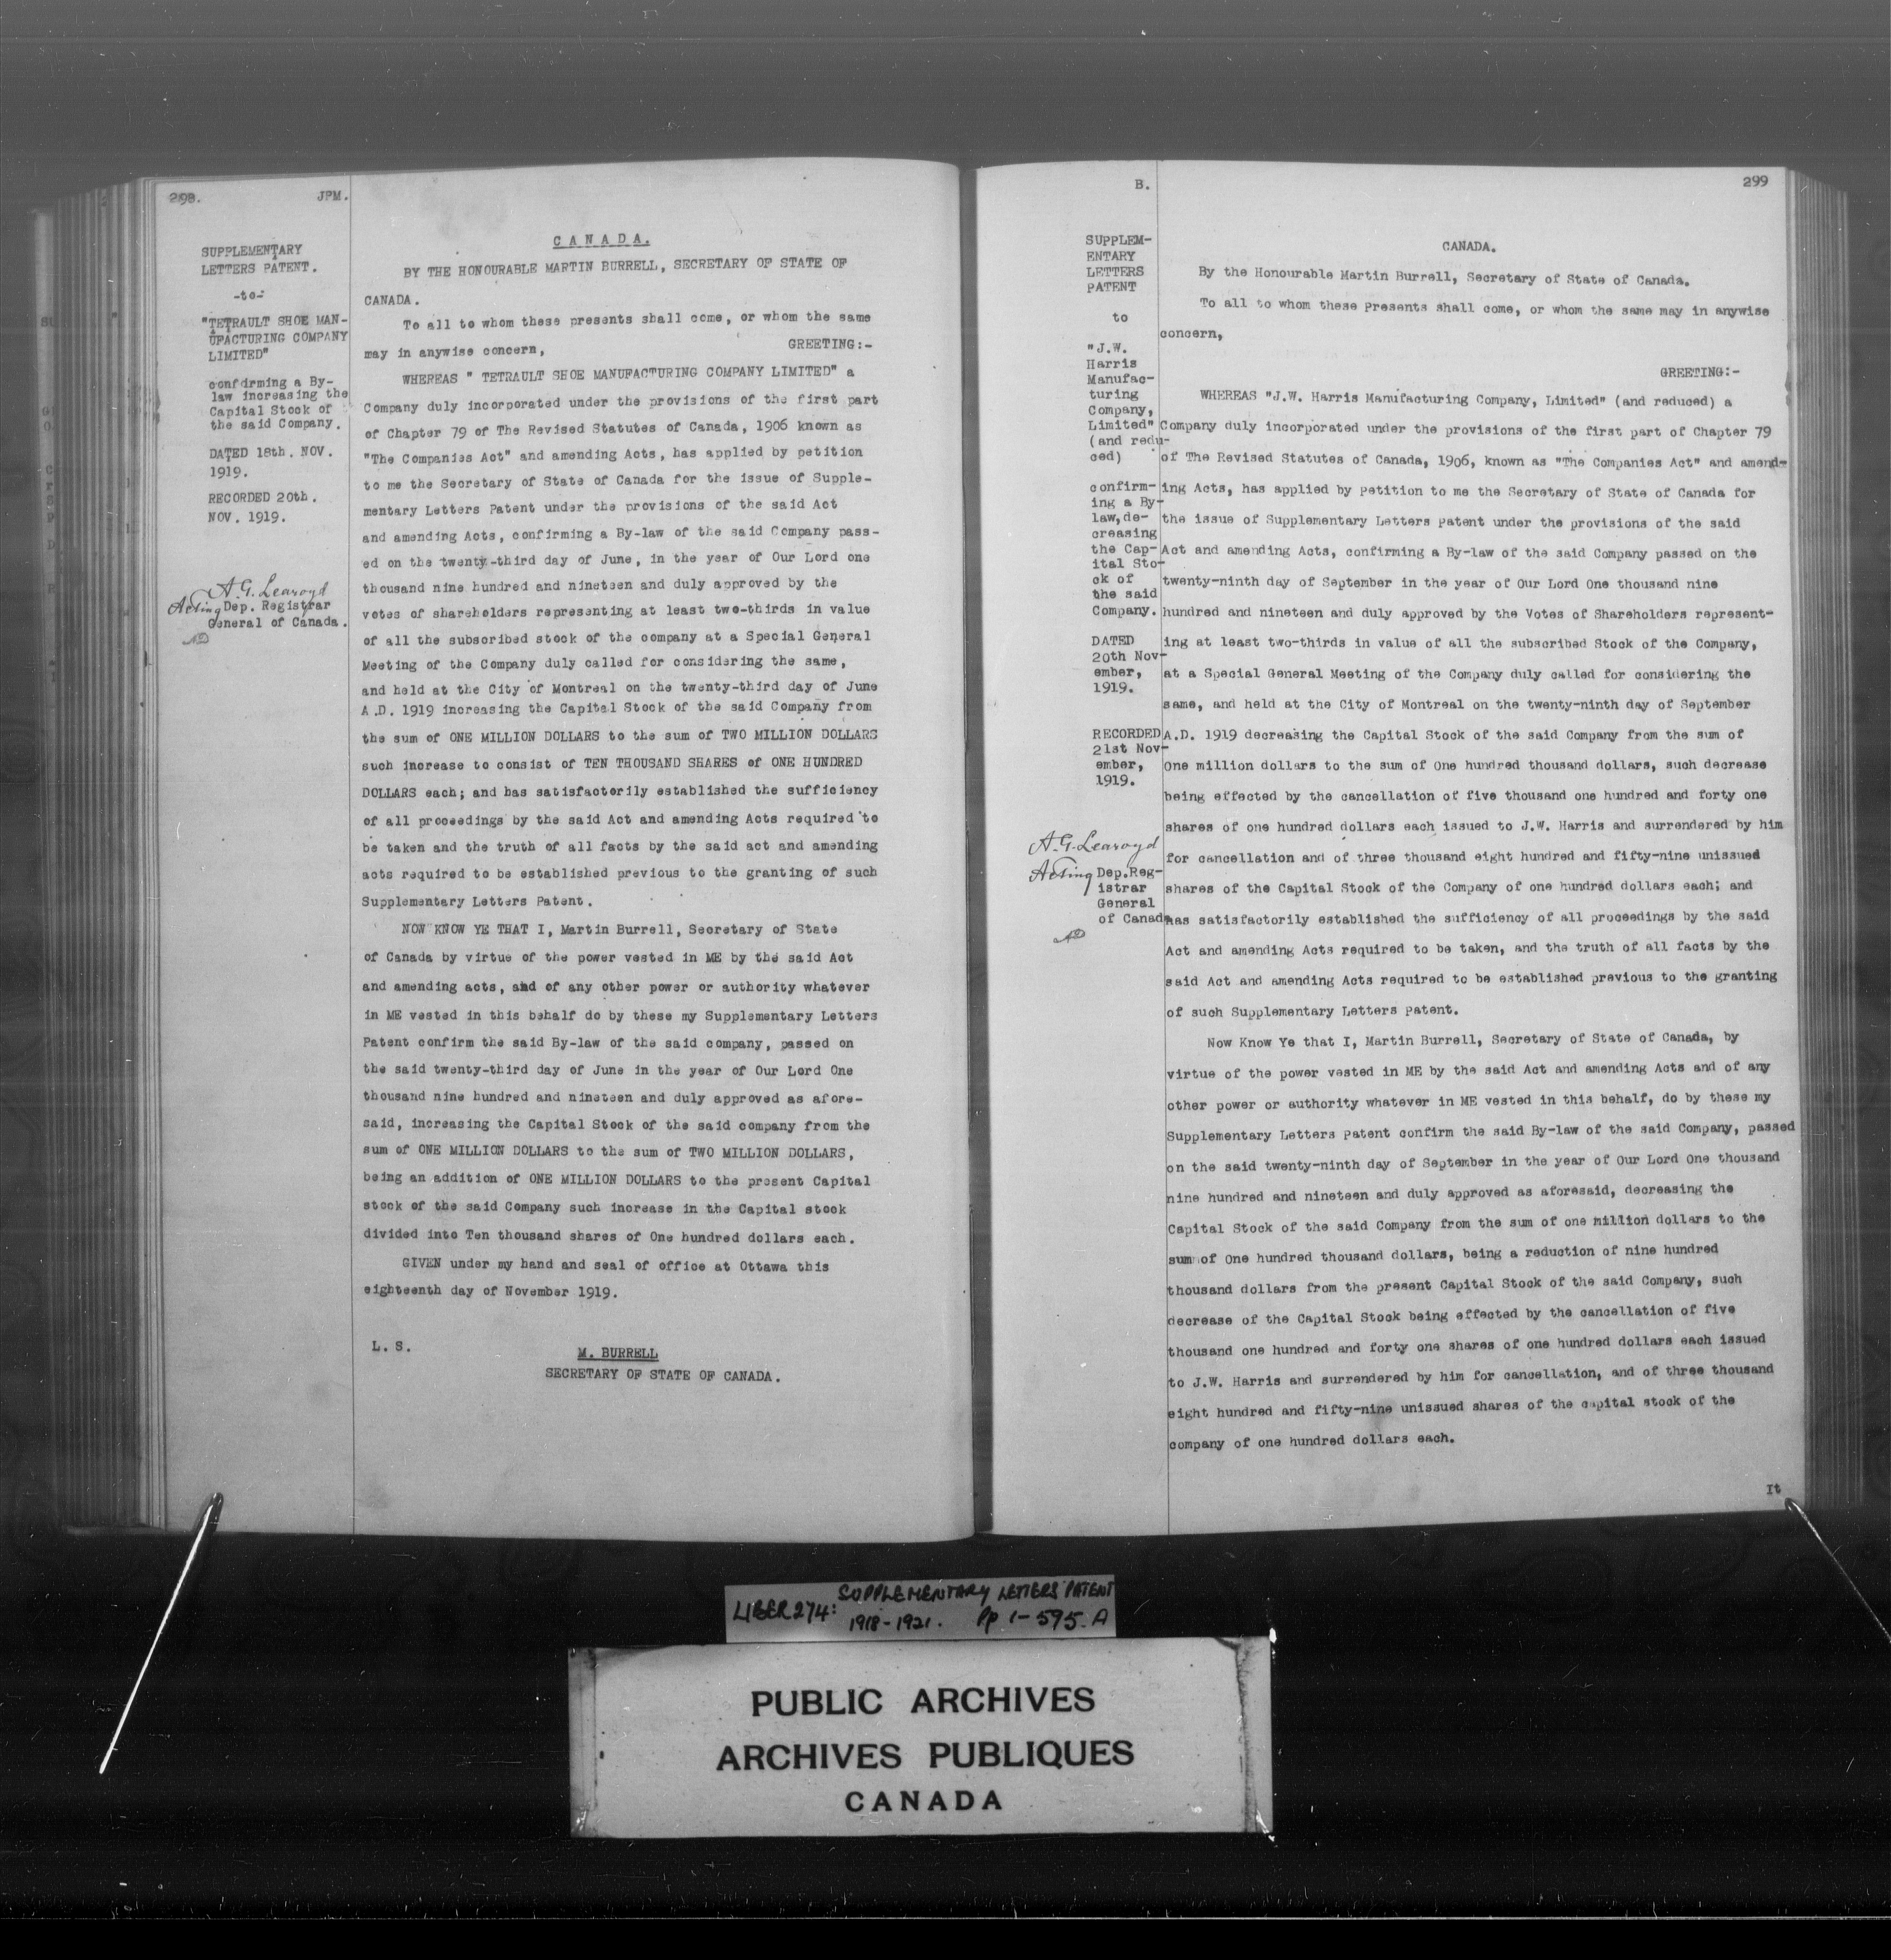 298. JPM.
SUPPLEMENTARY
LETTERS PATENT.
-to-
"TETRAULT SHOE MAN-
UFACTURING COMPANY
LIMITED"
confirming a By-
law increasing the
Capital Stock of
the said Company.
DATED 18th. NOV.
1919.
RECORDED 20th.
NOV. 1919.
A. G. Learoyd
Acting Dep. Registrar
General of Canada.
CANADA.
BY THE HONOURABLE MARTIN BURRELL, SECRETARY OF STATE OF
CANADA.
To all to whom these presents shall come, or whom the same
may in anywise concern, GREETING:-
WHEREAS " TETRAULT SHOE MANUFACTURING COMPANY LIMITED" a
Company duly incorporated under the provisions of the first part
of Chapter 79 of The Revised Statutes of Canada, 1906 known as
"The Companies Act" and amending Acts, has applied by petition
to me the Secretary of State of Canada for the issue of Supple-
mentary Letters Patent under the provisions of the said Act
and amending Acts, confirming a By-law of the said Company pass-
ed on the twenty-third day of June, in the year of Our Lord one
thousand nine hundred and nineteen and duly approved by the
votes of shareholders representing at least two-thirds in value
of all the subscribed stock of the company at a Special General
Meeting of the Company duly called for considering the same,
and held at the City of Montreal on the twenty-third day of June
A.D. 1919 increasing the Capital Stock of the said Company from
the sum of ONE MILLION DOLLARS to the sum of TWO MILLION DOLLARS
such increase to consist of TEN THOUSAND SHARES of ONE HUNDRED
DOLLARS each; and has satisfactorily established the sufficiency
of all proceedings by the said Act and amending Acts required to
be taken and the truth of all facts by the said act and amending
acts required to be established previous to the granting of such
Supplementary Letters Patent.
NOW KNOW YE THAT I, Martin Burrell, Secretary of State
of Canada by virtue of the power vested in ME by the said Act
and amending acts, and of any other power or authority whatever
in ME vested in this behalf do by these my Supplementary Letters
Patent confirm the said By-law of the said company, passed on
the said twenty-third day of June in the year of Our Lord One
thousand nine hundred and nineteen and duly approved as afore-
said, increasing the Capital Stock of the said company from the
sum of ONE MILLION DOLLARS to the sum of TWO MILLION DOLLARS,
being an addition of ONE MILLION DOLLARS to the present Capital
stock of the said Company such increase in the Capital stock
divided into Ten thousand shares of One hundred dollars each.
GIVEN under my hand and seal of office at Ottawa this
eighteenth day of November 1919.
L. S.
M. BURRELL
SECRETARY OF STATE OF CANADA.
B. 299
SUPPLEM-
ENTARY
LETTERS
PATENT
to
"J.W.
Harris
Manufac-
turing
Company,
Limited"
(and redu-
ced)
confirm-
ing a By-
law, de-
creasing
the Cap-
ital Sto-
ck of
the said
Company.
DATED
20th Nov-
ember,
1919.
RECORDED
21st Nov-
ember,
1919.
A. G. Learoyd
Acting Dep. Reg-
istrar
General
of Canada
CANADA.
By the Honourable Martin Burrell, Secretary of State of Canada.
To all to whom these Presents shall come, or whom the same may in anywise
concern,
GREETING:-
WHEREAS "J.W. Harris Manufacturing Company, Limited" (and reduced) a
Company duly incorporated under the provisions of the first part of Chapter 79
of The Revised Statutes of Canada, 1906, known as "The Companies Act" and amend-
ing Acts, has applied by Petition to me the Secretary of State of Canada for
the issue of Supplementary Letters Patent under the provisions of the said
Act and amending Acts, confirming a By-law of the said Company passed on the
twenty-ninth day of September in the year of Our Lord One thousand nine
hundred and nineteen and duly approved by the Votes of Shareholders represent-
ing at least two-thirds in value of all the subscribed Stock of the Company,
at a Special General Meeting of the Company duly called for considering the
same, and held at the City of Montreal on the twenty-ninth day of September
A.D. 1919 decreasing the Capital Stock of the said Company from the sum of
One million dollars to the sum of One hundred thousand dollars, such decrease
being effected by the cancellation of five thousand one hundred and forty one
shares of one hundred dollars each issued to J.W. Harris and surrendered by him
for cancellation and of three thousand eight hundred and fifty-nine unissued
shares of the Capital Stock of the Company of one hundred dollars each; and
has satisfactorily established the sufficiency of all proceedings by the said
Act and amending Acts required to be taken, and the truth of all facts by the
said Act and amending Acts required to be established previous to the granting
of such Supplementary Letters Patent.
Now Know Ye that I, Martin Burrell, Secretary of State of Canada, by
virtue of the power vested in ME by the said Act and amending Acts and of any
other power or authority whatever in ME vested in this behalf, do by these my
Supplementary Letters Patent confirm the said By-law of the said Company, passed
on the said twenty-ninth day of September in the year of Our Lord One thousand
nine hundred and nineteen and duly approved as aforesaid, decreasing the
Capital Stock of the said Company from the sum of one million dollars to the
sum of One hundred thousand dollars, being a reduction of nine hundred
thousand dollars from the present Capital Stock of the said Company, such
decrease of the Capital Stock being effected by the cancellation of five
thousand one hundred and forty one shares of one hundred dollars each issued
to J.W. Harris and surrendered by him for cancellation, and of three thousand
eight hundred and fifty-nine unissued shares of the capital stock of the
company of one hundred dollars each.
It
LIBER 274: SUPPLEMENTARY LETTERS PATENT
1918-1921. Pp 1-595. A
PUBLIC ARCHIVES
ARCHIVES PUBLIQUES
CANADA